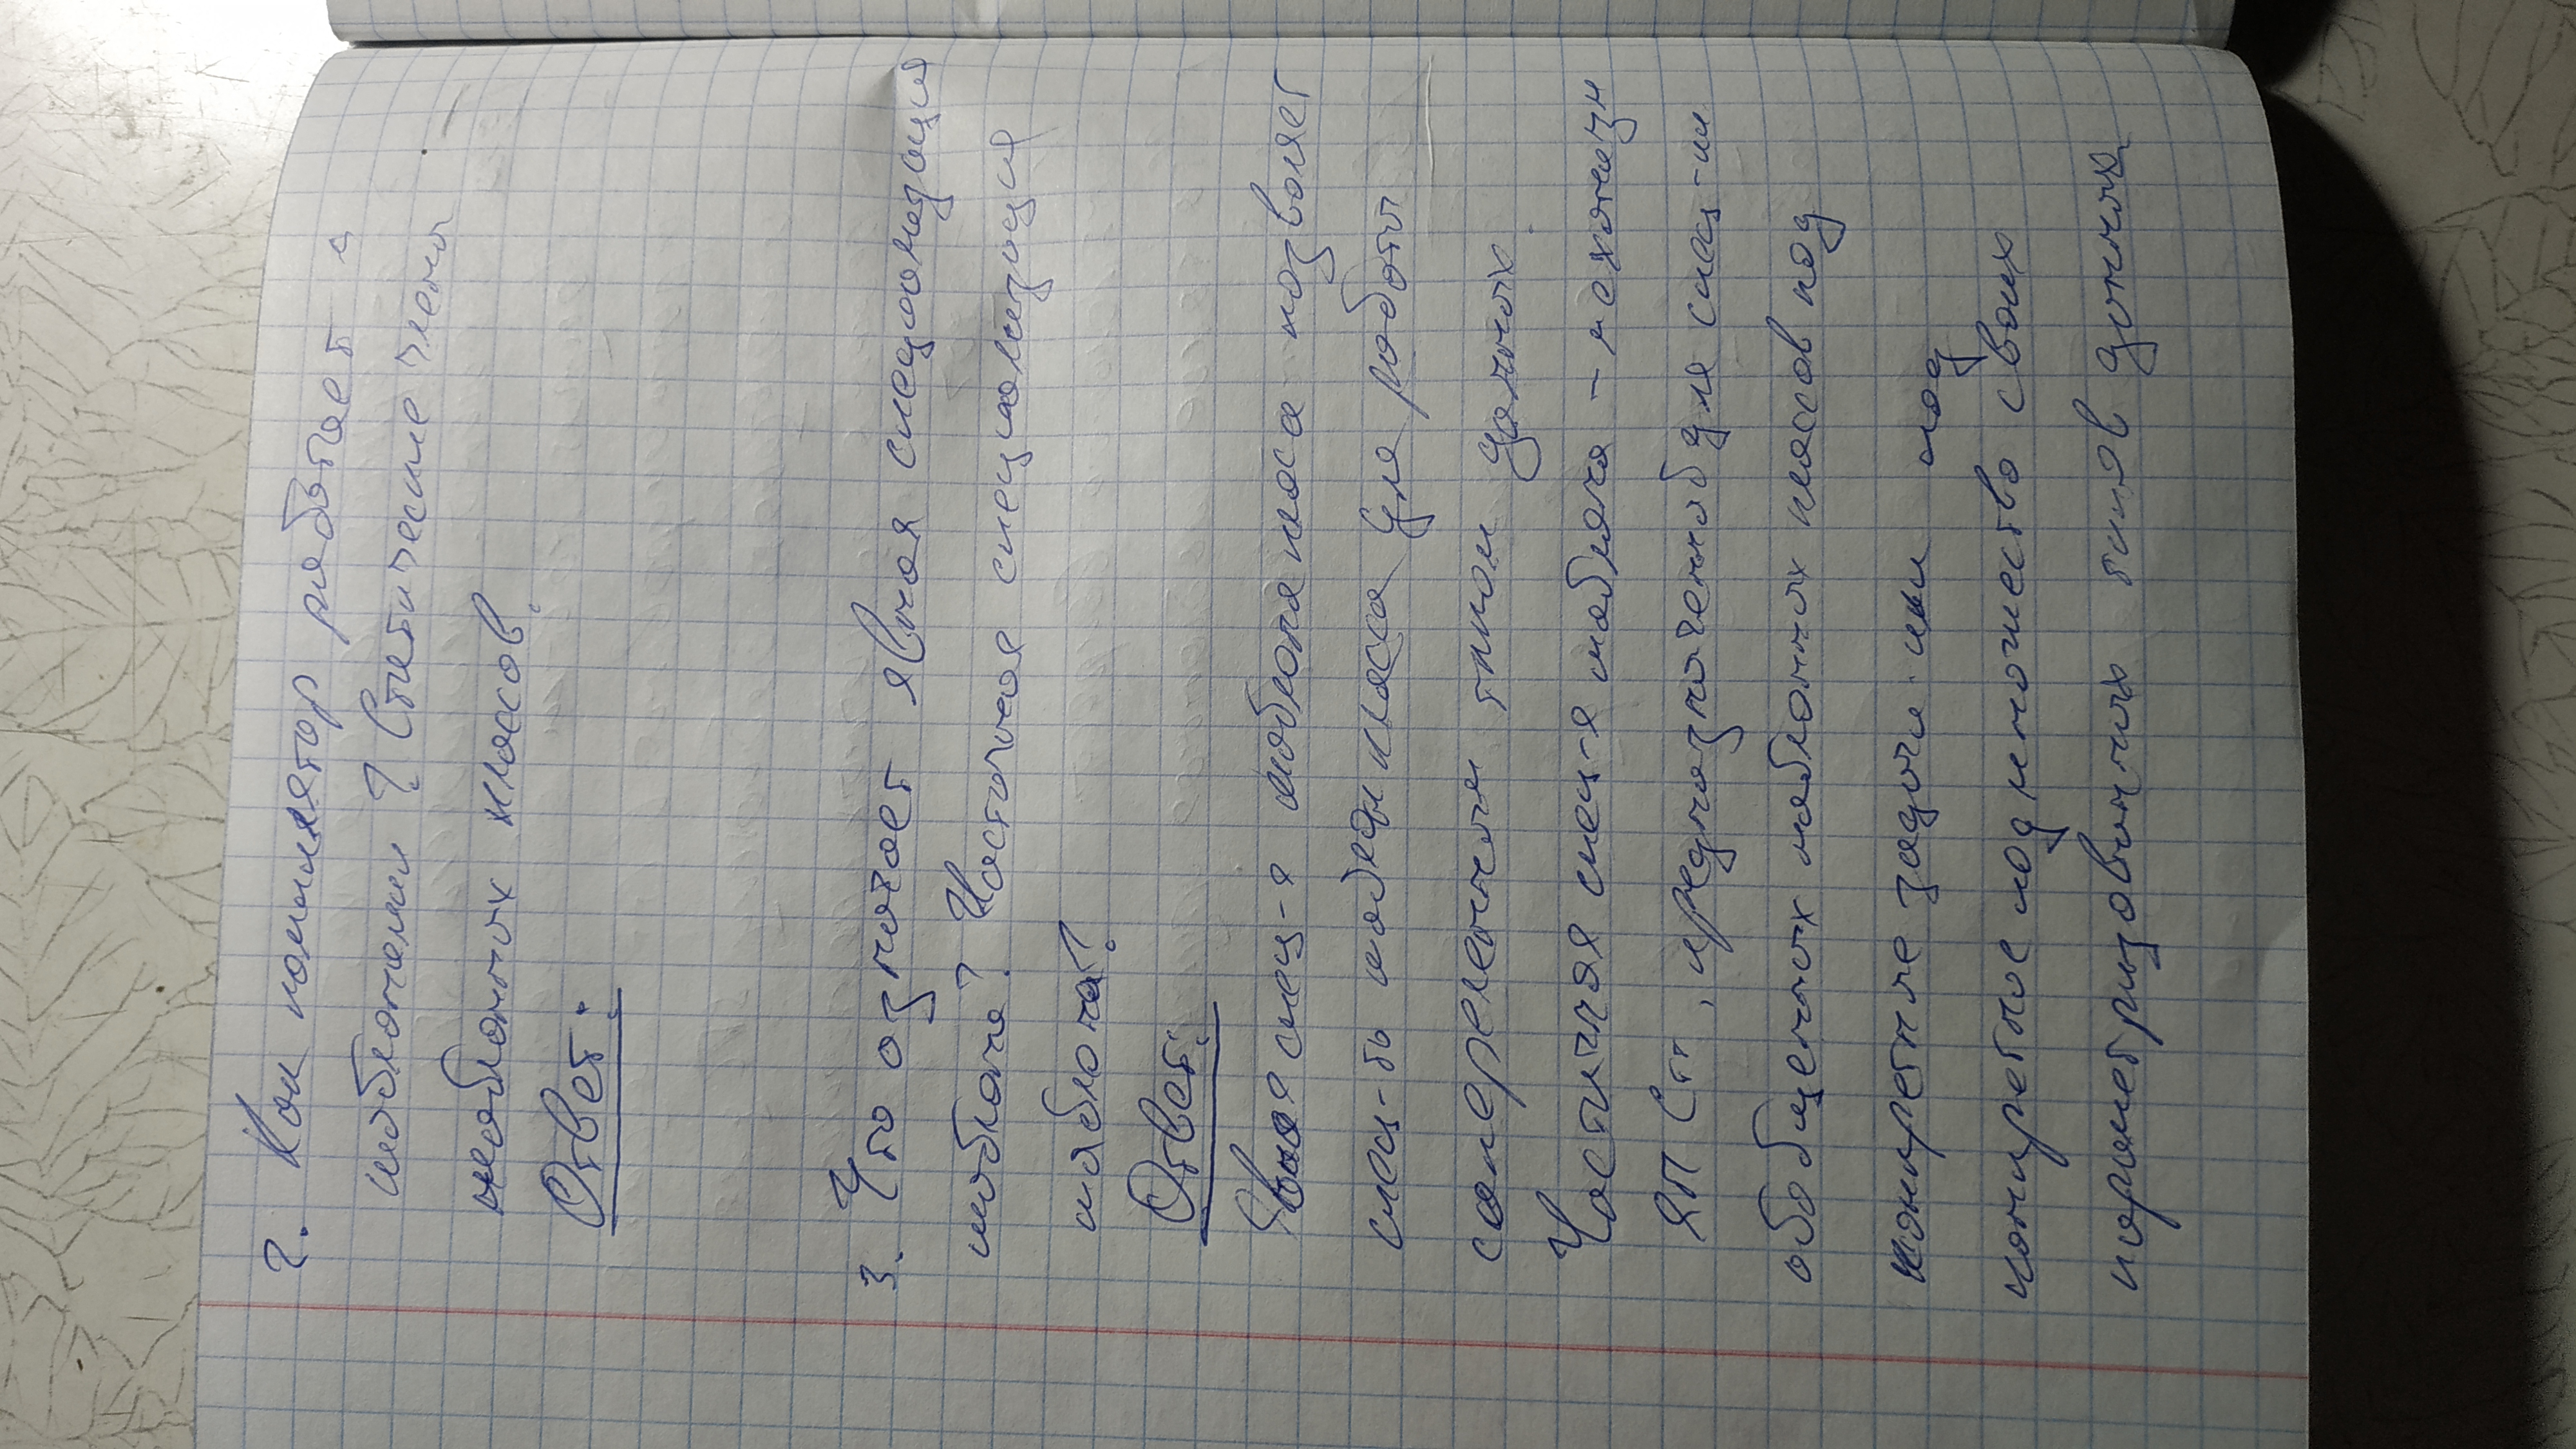 2. Как компилятор работает с
шаблонами? Статические члены
шаблонных классов.
Ответ:
3. Что означает явная специализация
шаблона? Частичная специализация
шаблона?
Ответ:
Явная спец-я шаблона класса позволяет
спец-ть шаблон класса для работы
с определенным типом данных.
Частичная спец-я шаблона - механизм
ЯП C++, предназначенный для спец-ии
обобщенных шаблонных классов под
конкретные задачи или под
конкретное подмножество своих
параметризованных типов данных